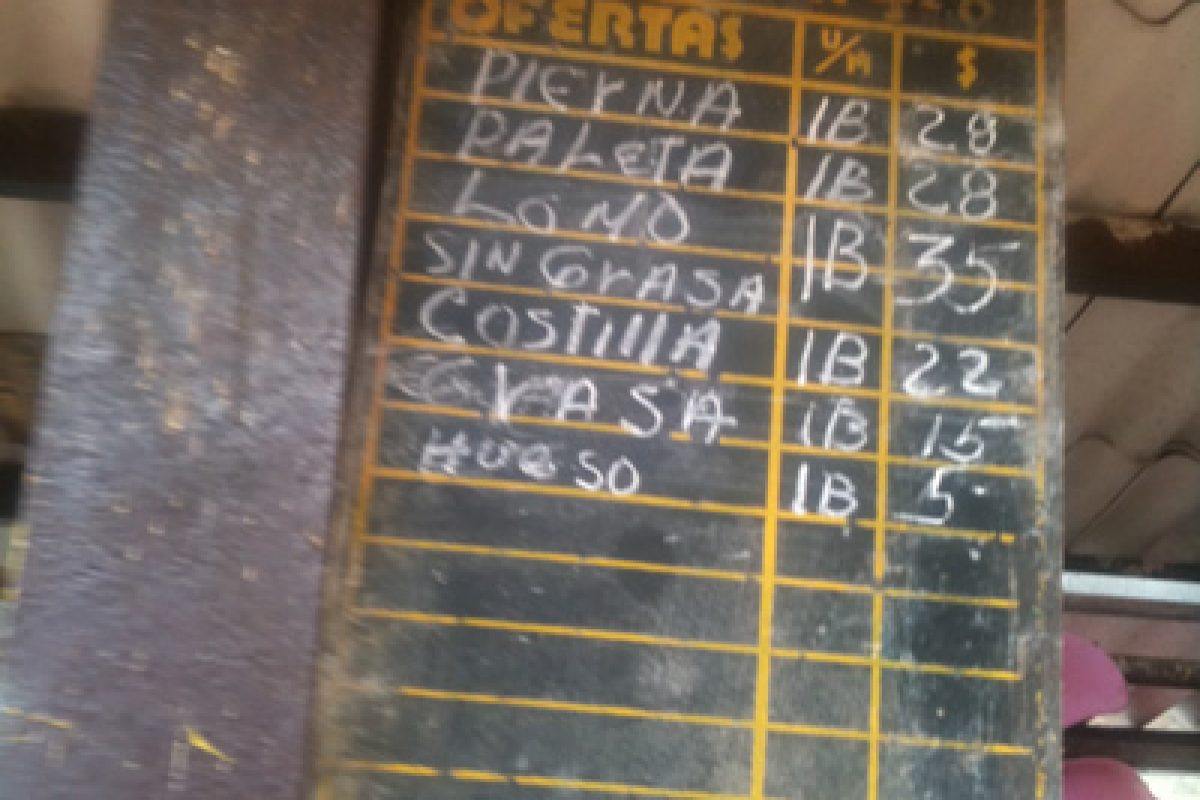 OFERTAS U/M $
PIERNA 1B 28
PALETA 1B 28
LOMO
SIN GRASA 1B 35
COSTIllA 1B 22
GRASA 1B 15
HUESO 1B 5